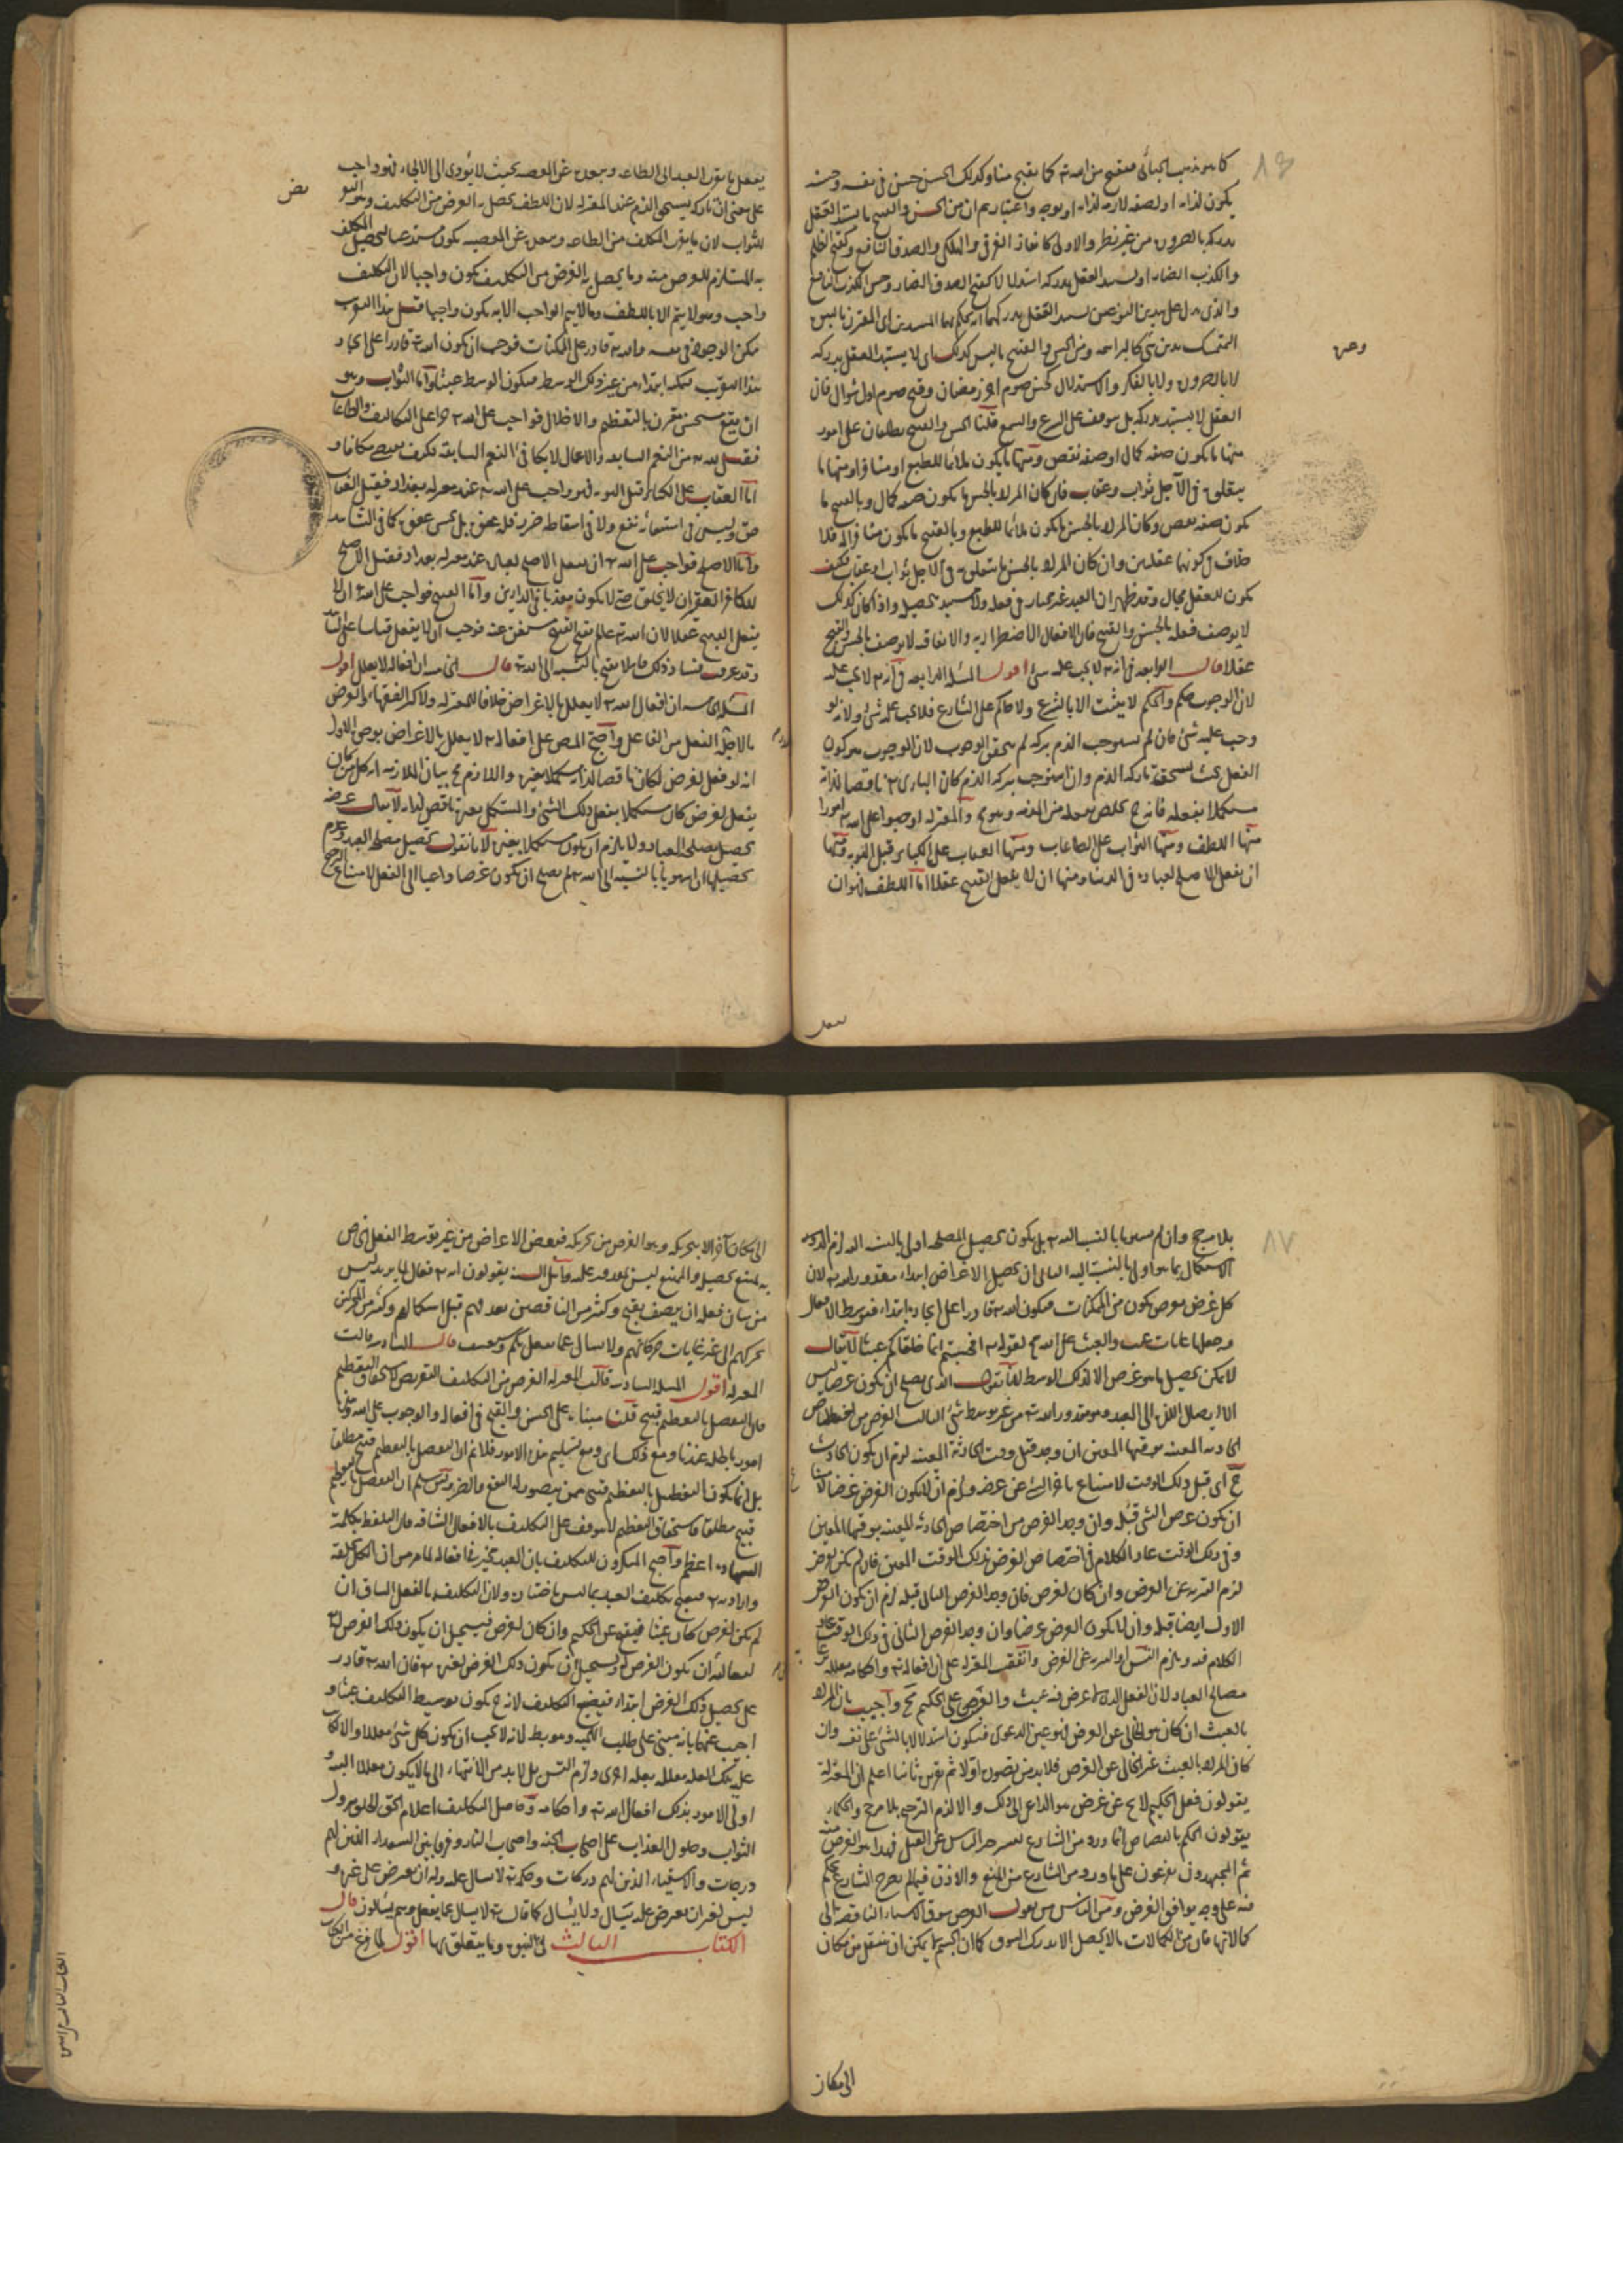 كما هو مذهب الجبائي فيقبح من الله تع كما يقبح منا وكذلك الحسن حسن في نفسه وحسنه
يكون لذاته او لصفة لازمة لذاته او لوجوه واعتبار ثم ان من الحسن والقبيح ما يستبد العقل
بدركه بالضرورة من غير نظر والاولى كانقاذ الغرقى والهلكى والصدق النافع وكقبح الظلم
والكذب الضار او يستبد العقل بدركه استدلالا كقبح الصدق الضار وحسن الكذب النافع
والذي يدل على هذين النوعين يستبد العقل بدركهما انه يحكم بهما المتدين اي المقر
المتمسك بدين شيء كالبراهمة ومن الحسن والقبيح ما ليس كذلك اي لا يستبد العقل بدركه
لا بالضرورة ولا بالفكر والاستدلال كحسن صوم اخر رمضان وقبح صوم اول شوال فان
العقل لا يستبد بدركه بل يتوقف على الشرع والسمع قلنا الحسن والقبح يطلقان على امور
منها ما يكون صفة كمال او صفة نقص ومنها ما يكون ملائما للطبع او منافرا ومنها ما
يتعلق به في الآجل ثواب وعقاب فان كان المراد بالحسن ما يكون صفة كمال وبالقبح ما
يكون صفة نقص وكان المراد بالحسن ما يكون ملائما للطبع وبالقبح ما يكون منافرا له فلا
خلاف في كونهما عقليين وان كان المراد بالحسن ما يتعلق به في الآجل ثواب او عقاب فكيف
يكون للعقل مجال وقد ظهر ان العبد غير مختار في فعله ولا مستبد بتحصيله واذا كان كذلك
لا يوصف فعله بالحسن والقبح فان الافعال الاضطرارية والاتفاقية لا توصف بالحسن والقبح
عقلا قال الرابعة في انه لا يجب عليه شيء اقول المسئلة الرابعة في انه تع لا يجب عليه
لان الوجوب حكم والحكم لا يثبت الا بالشرع ولا حاكم على الشارع فلا يجب عليه شيء ولانه لو
وجب عليه شيء فان لم يستوجب الذم بتركه لم يتحقق الوجوب لان الوجوب هو كون
الفعل بحيث يستحق تاركه الذم وان استوجب بتركه الذم كان الباري تع ناقصا لذاته
مستكملا بفعله فانه ح تخلص بفعله من المذمة وهو مح والمعتزلة اوجبوا على الله تع امورا
منها اللطف ومنها الثواب على الطاعات ومنها العقاب على الكبائر قبل التوبة ومنها
ان يفعل الاصلح لعباده في الدنيا ومنها ان لا يفعل القبيح عقلا اما اللطف فهو ان
وعن
يفعل
يفعل ما يقرب العبد الى الطاعة ويبعده عن المعصية بحيث لا يؤدي الى الالجاء فهو واجب
على معنى ان تاركه يستحق الذم عند المعتزلة لان اللطف يحصل به الغرض من التكليف وهو التعريض
للثواب لان ما يقرب المكلف من الطاعة ويبعده عن المعصية يكون مستدعيا لتحصيل المكلف
به المستلزم للغرض منه وما يحصل به الغرض من التكليف يكون واجبا لان التكليف
واجب وهو لا يتم الا باللطف وما لا يتم الواجب الا به يكون واجبا قيل هذا التقريب
ممكن الوجود في نفسه والله تع قادر على الممكنات فوجب ان يكون الله تع قادرا على ايجاد
هذا التقريب ابتداء من غير ذلك الوسط فيكون الوسط عبثا واما الثواب وهو
نفع مستحق مقرون بالتعظيم والاجلال فواجب على الله تع جزاء على التكاليف والطاعات
من النعم السابقة والاعمال لا تكافئ النعم السابقة فكيف يقتضي مكافاة
اما العقاب على الكبائر قبل التوبة فهو واجب على الله تع عند معتزلة بغداد فقيل العقاب
حق وليس في استيفائه نفع ولا في اسقاطه ضرر فله عفوه بل يحسن عفوه كما في الشاهد
واما الاصلح فواجب على الله تع ان يفعل الاصلح لعباده عند معتزلة بغداد فقيل الاصلح
للكافر الفقير ان لا يخلق حتى لا يكون معذبا في الدارين واما القبيح فواجب على الله تع ان لا
يفعل القبيح عقلا لان الله تع عالم بقبح القبيح مستغن عنه فوجب ان لا يفعل قياسا على الشاهد
وقد عرفت فساد ذلك فانه لا يقبح بالنسبة الى الله تع قال الخامسة ان افعاله لا تعلل اقول
المسئلة الخامسة ان افعال الله تع لا تعلل بالاغراض خلافا للمعتزلة ولاكثر الفقهاء والغرض
ما لاجله الفعل من الفاعل واحتج المص على ان افعاله تع لا تعلل بالاغراض بوجوه الاول
انه لو فعل لغرض لكان ناقصا لذاته مستكملا بغيره واللازم مح بيان الملازمة ان كل من كان
يفعل لغرض كان مستكملا بفعل ذلك الشيء والمستكمل بغيره ناقص لذاته لا يقال غرضه
تحصيل مصلحة العباد ولا يلزم ان يكون مستكملا بغيره لانا نقول تحصيل مصلحة العبد وعدم
تحصيلها ان استويا بالنسبة الى الله تع لم يصلح ان يكون غرضا داعيا الى الفعل لامتناع الترجيح
٨٧
بلا مرجح وان لم يستويا بالنسبة اليه تع بل يكون تحصيل المصلحة اولى بالنسبة اليه لزم
الاستكمال بما هو اولى بالنسبة اليه الثاني ان تحصيل الاغراض ابتداء مقدور الله تع لان
كل غرض يفرض يكون من الممكنات فيكون الله تع قادرا على ايجاده ابتداء فتوسط الافعال
وجعلها غايات عبث والعبث على الله مح لقوله تع افحسبتم انما خلقناكم عبثا لا يقال
لا يمكن تحصيل ما هو غرض الا بذلك الوسط لانا نقول الذي يصلح ان يكون غرضا ليس
الا ايصال اللذة الى العبد وهو مقدور الله تع من غير توسط شيء الثالث الغرض من اختصاص
الحادثة المعينة بوقتها المعين ان وجد قبل وقت الحادثة المعينة لزم ان يكون الحادث
ح اي قبل ذلك الوقت لامتناع تاخر الشيء عن غرضه ولزم ان لا يكون الغرض غرضا
ان يكون غرض الشيء قبله وان وجد الغرض من اختصاص الحادثة المعينة بوقتها المعين
وفي ذلك الوقت عاد الكلام في اختصاص الغرض بذلك الوقت المعين فان لم يكن لغرض
لزم التنزيه عن الغرض وان كان لغرض فان وجد الغرض الثاني قبله لزم ان يكون الغرض
الاول ايضا قبله وان لا يكون الغرض غرضا وان وجد الغرض الثاني في ذلك الوقت عاد
الكلام فيه ويلزم التس او التنزيه عن الغرض واتفقت المعتزلة على ان افعاله تع واحكامه معللة
مصالح العباد لان الفعل الذي لا غرض فيه عبث والعبث على الحكيم مح واجيب بان المراد
بالعبث ان كان هو الخالي عن الغرض فهو عين الدعوى فيكون استدلالا بالشيء على نفسه وان
كان المراد بالعبث غير الخالي عن الغرض فلا بد من تصويره اولا ثم تقريره ثانيا اعلم ان المعتزلة
يقولون فعل الحكيم لا يخ عن غرض هو الداعي الى ذلك والا لزم الترجيح بلا مرجح والحكماء
يقولون الحكم بالقصاص انما ورد من الشارع لينزجر الناس عن القتل فهذا هو الغرض منه
ثم المجتهدون يفرعون على ما ورد من الشارع من المنع والاذن فيما لم يصرح الشارع بحكم
فيه على وجه يوافق الغرض ومن الناس من يقول الغرض سوق الاشياء الناقصة الى
كمالاتها فان من الكمالات ما لا يحصل الا بذلك السوق كما ان الجسم لا يمكن ان ينتقل من مكان
الى مكان
الى مكان آخر الا بتحريكه وهو الغرض من تحريكه فبعض الاغراض من غير توسط الفعل الخاص
به يمتنع تحصيله والممتنع ليس بمقدور عليه واهل السنة يقولون انه تع فعال لما يريد ليس
من شان فعله ان يوصف بقبح وكثير من الناقصين يعدمهم قبل استكمالهم وكثير من المتحركين
يحركهم الى غير غايات حركاتهم ولا يسال عما يفعل بكم وكيف قال السادسة قالت
المعتزلة اقول المسئلة السادسة قالت المعتزلة الغرض من التكليف التعريض لاستحقاق التعظيم
فان التفضل بالتعظيم قبيح قلنا مبناه على الحسن والقبح في افعاله والوجوب على الله وهما
امور باطلة عندنا ومع ذلك اي ومع تسليم هذه الامور فلا نم ان التفضل بالتعظيم قبيح مطلقا
بل انما يكون التفضل بالتعظيم قبيحا ممن يتصور له النفع والضرر ولئن سلم ان التفضل بالتعظيم
قبيح مطلقا فاستحقاق التعظيم لا يتوقف على التكليف بالافعال الشاقة فان التلفظ بكلمة
الشهادة اعظم واحتج المنكرون للتكليف بان العبد مجبر في افعاله لما مر من ان الكل بخلقه
وارادته تع فيقبح تكليف العبد بما ليس باختياره ولان التكليف بالفعل الشاق ان
لم يكن لغرض كان عبثا فيقبح عن الحكيم وان كان لغرض فيستحيل ان يكون ذلك الغرض له تع
لتعاليه ان يكون الغرض له ويستحيل ان يكون ذلك الغرض لغيره تع فان الله تع قادر
على تحصيل ذلك الغرض ابتداء فيضيع التكليف لانه ح يكون توسيط التكليف عبثا و
اجيب عنهما بانه مبني على طلب اللمية وهو بط لانه لا يجب ان يكون كل شيء معللا والا كان
علية تلك العلة معللة بعلة اخرى ولزم التس بل لا بد من الانتهاء الى ما لا يكون معللا البتة و
اولى الامور بذلك افعال الله تع واحكامه وحاصل التكليف اعلام الحق الخلق بنزول
الثواب وحلول العذاب على اصحاب الجنة واصحاب النار وفرق بين السعداء الذين لهم
درجات والاشقياء الذين لهم دركات وحكمه تع لا يسال عليه وله ان يعترض على غيره و
ليس لغيره ان يعترض عليه يسال ولا يسال كما قال تع لا يسال عما يفعل وهم يسئلون قال
الكتاب الثالث في النبوة وما يتعلق بها اقول لما فرغ من الكتاب